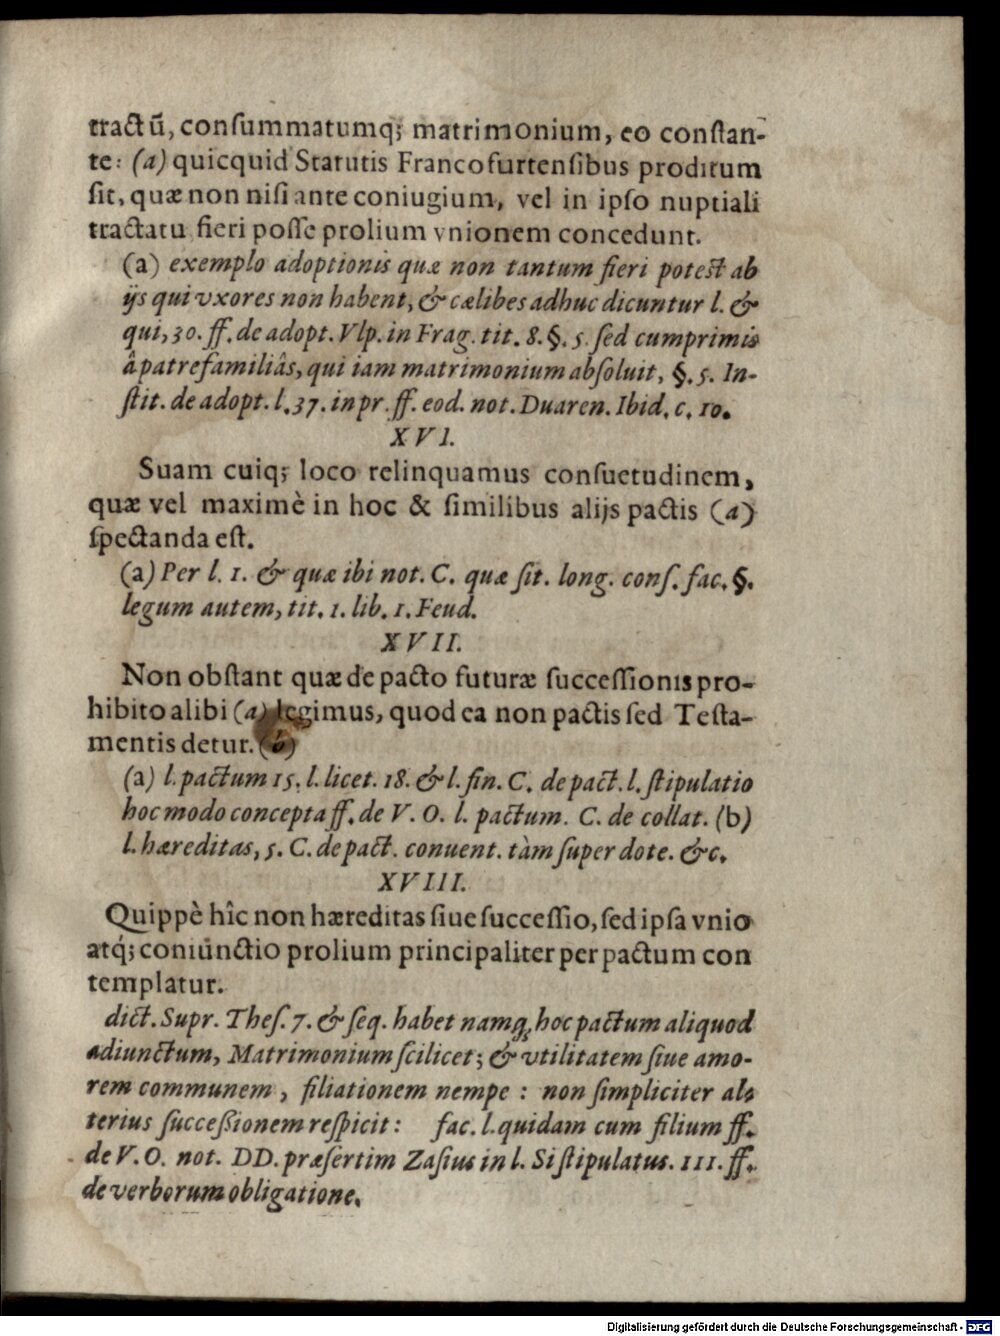 tractū, conſummatumq; matrimonium, eo conſtan-
te: (a) quicquid Statutis Francofurtenſibus proditum
ſit, quæ non niſi ante coniugium, vel in ipſo nuptiali
tractatu fieri poſſe prolium vnionem concedunt.
(a) exemplo adoptionis quæ non tantum fieri poteſt ab
ijs qui vxores non habent, & cælibes adhuc dicuntur l. &
qui, 30. ff. de adopt. Vlp. in Frag. tit. 8. §. 5. ſed cumprimis
â patrefamiliâs, qui iam matrimonium abſoluit, §. 5. In-
ſtit. de adopt. l. 37. in pr. ff. eod. not. Duaren. Ibid. c. 10.
XVI.
Suam cuiq; loco relinquamus conſuetudinem,
quæ vel maximè in hoc & ſimilibus alijs pactis (a)
ſpectanda eſt.
(a) Per l. 1. & quæ ibi not. C. quæ ſit. long. conſ. fac. §.
legum autem, tit. 1. lib. 1. Feud.
XVII.
Non obſtant quæ de pacto futuræ ſucceſſionis pro-
hibito alibi (a) legimus, quod ea non pactis ſed Teſta-
mentis detur. (b)
(a) l. pactum 15. l. licet. 18. & l. fin. C. de pact. l. ſtipulatio
hoc modo concepta ff. de V. O. l. pactum. C. de collat. (b)
l. hæreditas, 5. C. de pact. conuent. tàm ſuper dote. &c.
XVIII.
Quippè hîc non hæreditas ſiue ſucceſſio, ſed ipſa vnio
atq́; coniunctio prolium principaliter per pactum con
templatur.
dict. Supr. Theſ. 7. & ſeq. habet namq; hoc pactum aliquod
adiunctum, Matrimonium ſcilicet; & vtilitatem ſiue amo-
rem communem, filiationem nempe: non ſimpliciter al-
terius ſucceſsionem reſpicit: fac. l. quidam cum filium ff.
de V. O. not. DD. præſertim Zaſius in l. Si ſtipulatus. 111. ff.
de verborum obligatione.
Digitalisierung gefördert durch die Deutsche Forschungsgemeinschaft - DFG